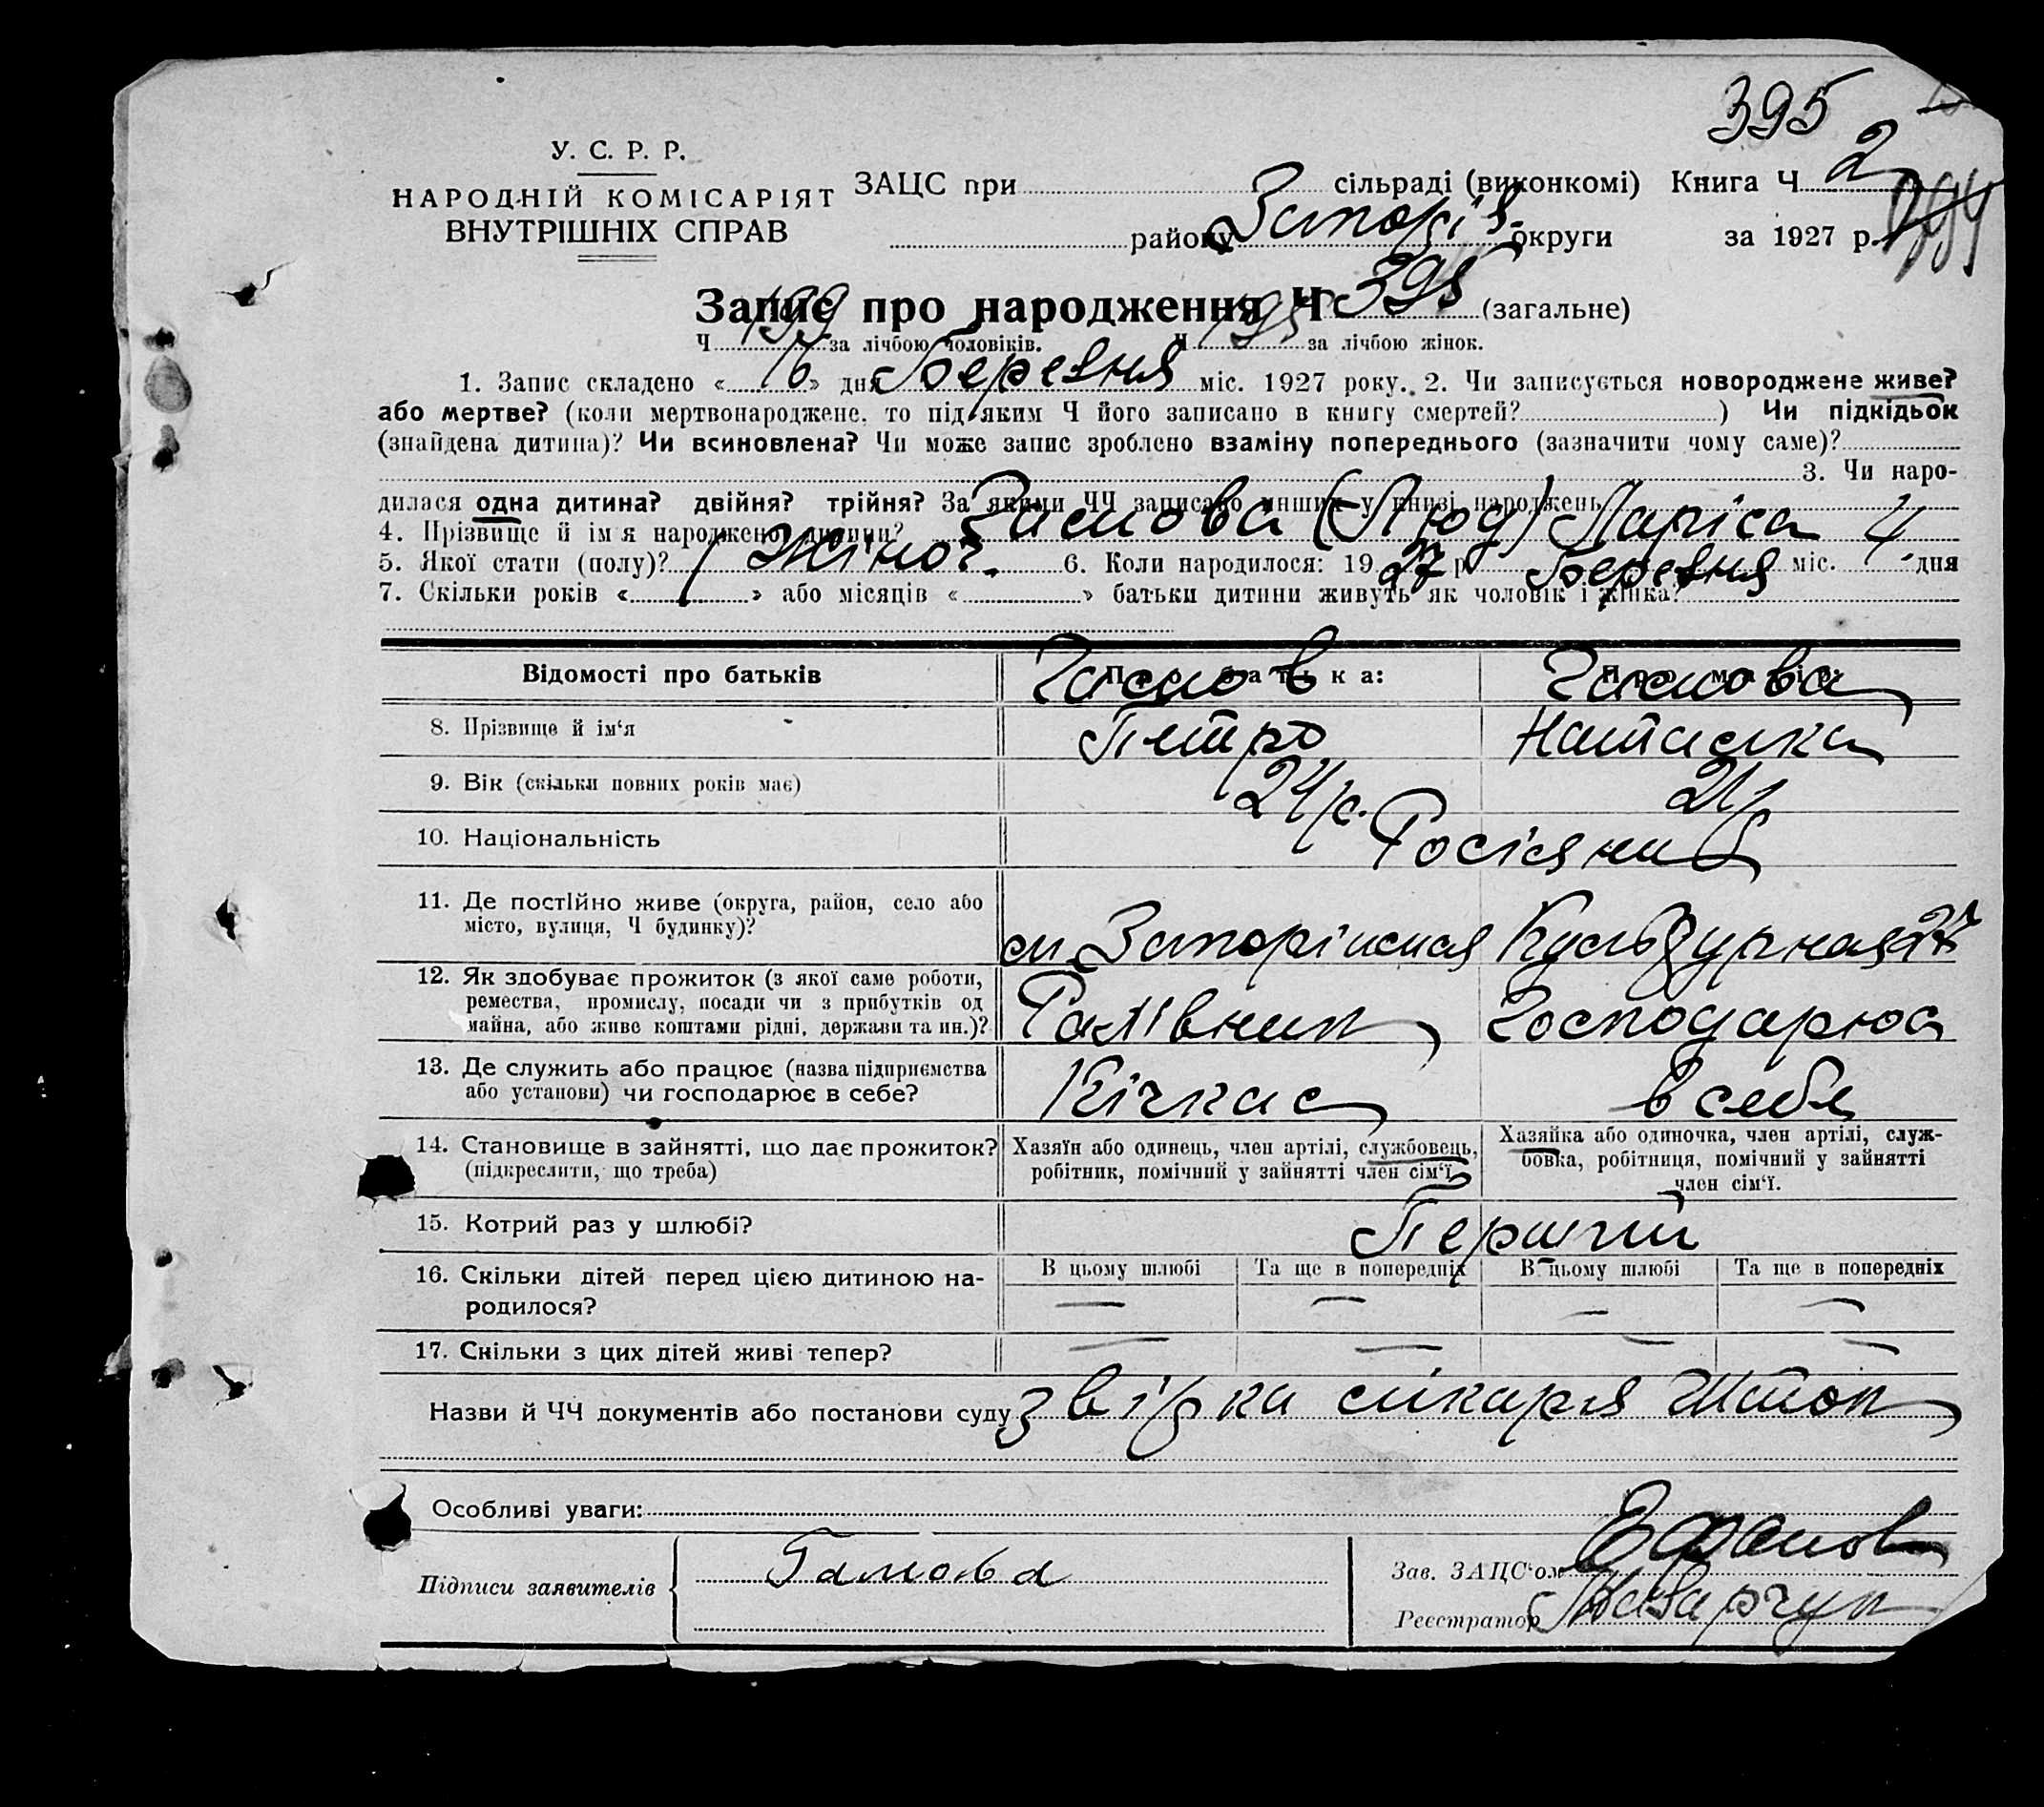 395
У. С. Р. Р.
НАРОДНІЙ КОМІСАРІЯТ
ВНУТРІШНІХ СПРАВ
ЗАЦС при сільраді (виконкомі) Книга Ч 2
району Запоріз. округи за 1927 р.
Запис про народження Ч 395 (загальне)
Ч 199 за лічбою чоловіків. Ч 195 за лічбою жінок.
1. Запис складено « 16 » дня Березня міс. 1927 року. 2. Чи записується новороджене живе?
або мертве? (коли мертвонароджене, то під яким Ч його записано в книгу смертей? ) Чи підкідьок
(знайдена дитина)? Чи всиновлена? Чи може запис зроблено взаміну попереднього (зазначити чому саме)?
3. Чи наро-
дилася одна дитина? двійня? трійня? За якими ЧЧ записано инших у книзі народжень
4. Прізвище й ім'я народженої дитини? Гамова (Люд) Ларіса
5. Якої стати (полу)? Жіноч. 6. Коли народилося: 1927 р. Березня міс. 4 дня
7. Скільки років « 1 » або місяців « » батьки дитини живуть як чоловік і жінка?
Відомості про батьків Про батька: Про матір:
8. Прізвище й ім'я Гамов Петро Гамова Наталка
9. Вік (скільки повних років має) 24 р. 21 р
10. Національність Росіяни
11. Де постійно живе (округа, район, село або
місто, вулиця, Ч будинку)? м. Запоріжжя 27
12. Як здобуває прожиток (з якої саме роботи,
ремества, промислу, посади чи з прибутків од
майна, або живе коштами рідні, держави та ин.)? Господарює
13. Де служить або працює (назва підприємства
або установи) чи господарює в себе? Кічкас в себе
14. Становище в зайнятті, що дає прожиток?
(підкреслити, що треба)
Хазяїн або одинець, член артілі, службовець,
робітник, помічний у зайнятті член сім'ї
Хазяйка або одиночка, член артілі, служ-
бовка, робітниця, помічний у зайнятті
член сім'ї.
15. Котрий раз у шлюбі? Перший
16. Скільки дітей перед цією дитиною на-
родилося?
В цьому шлюбі Та ще в попередніх В цьому шлюбі Та ще в попередніх
— — — —
17. Скільки з цих дітей живі тепер? — — — —
Назви й ЧЧ документів або постанови суду звірка лікаря
Особливі уваги:
Підписи заявителів Гамова
Зав. ЗАЦС'ом
Реєстратор